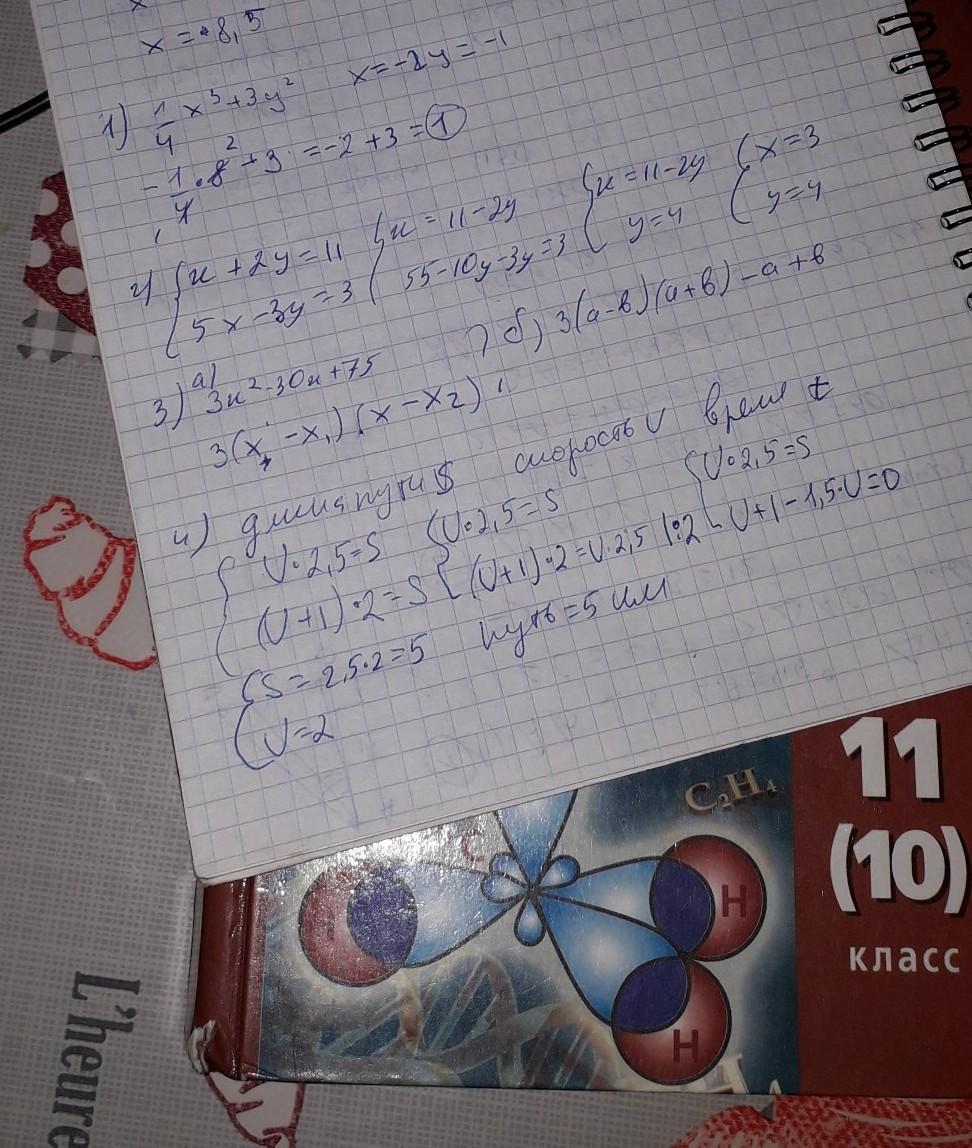 x = -8,5
1) 1/4 x³ + 3y² x = -2 y = -1
-1/4 · 8² + 3 = -2 + 3 = 1
2) { x + 2y = 11 { x = 11 - 2y { x = 11 - 2y { x = 3
{ 5x - 3y = 3 { 55 - 10y - 3y = 3 { y = 4 { y = 4
3) а) 3x² - 30x + 75 б) 3(a-b)(a+b) - a + b
3(x - x₁)(x - x₂)
4) длина пути S скорость V время t
{ V · 2,5 = S { V · 2,5 = S { V · 2,5 = S
{ (V+1) · 2 = S { (V+1) · 2 = V · 2,5 |:2 { V + 1 - 1,5 · V = 0
{ S = 2,5 · 2 = 5 путь = 5 км
{ V = 2
C₂H₄
11
(10)
класс
C
H
H
L'heure